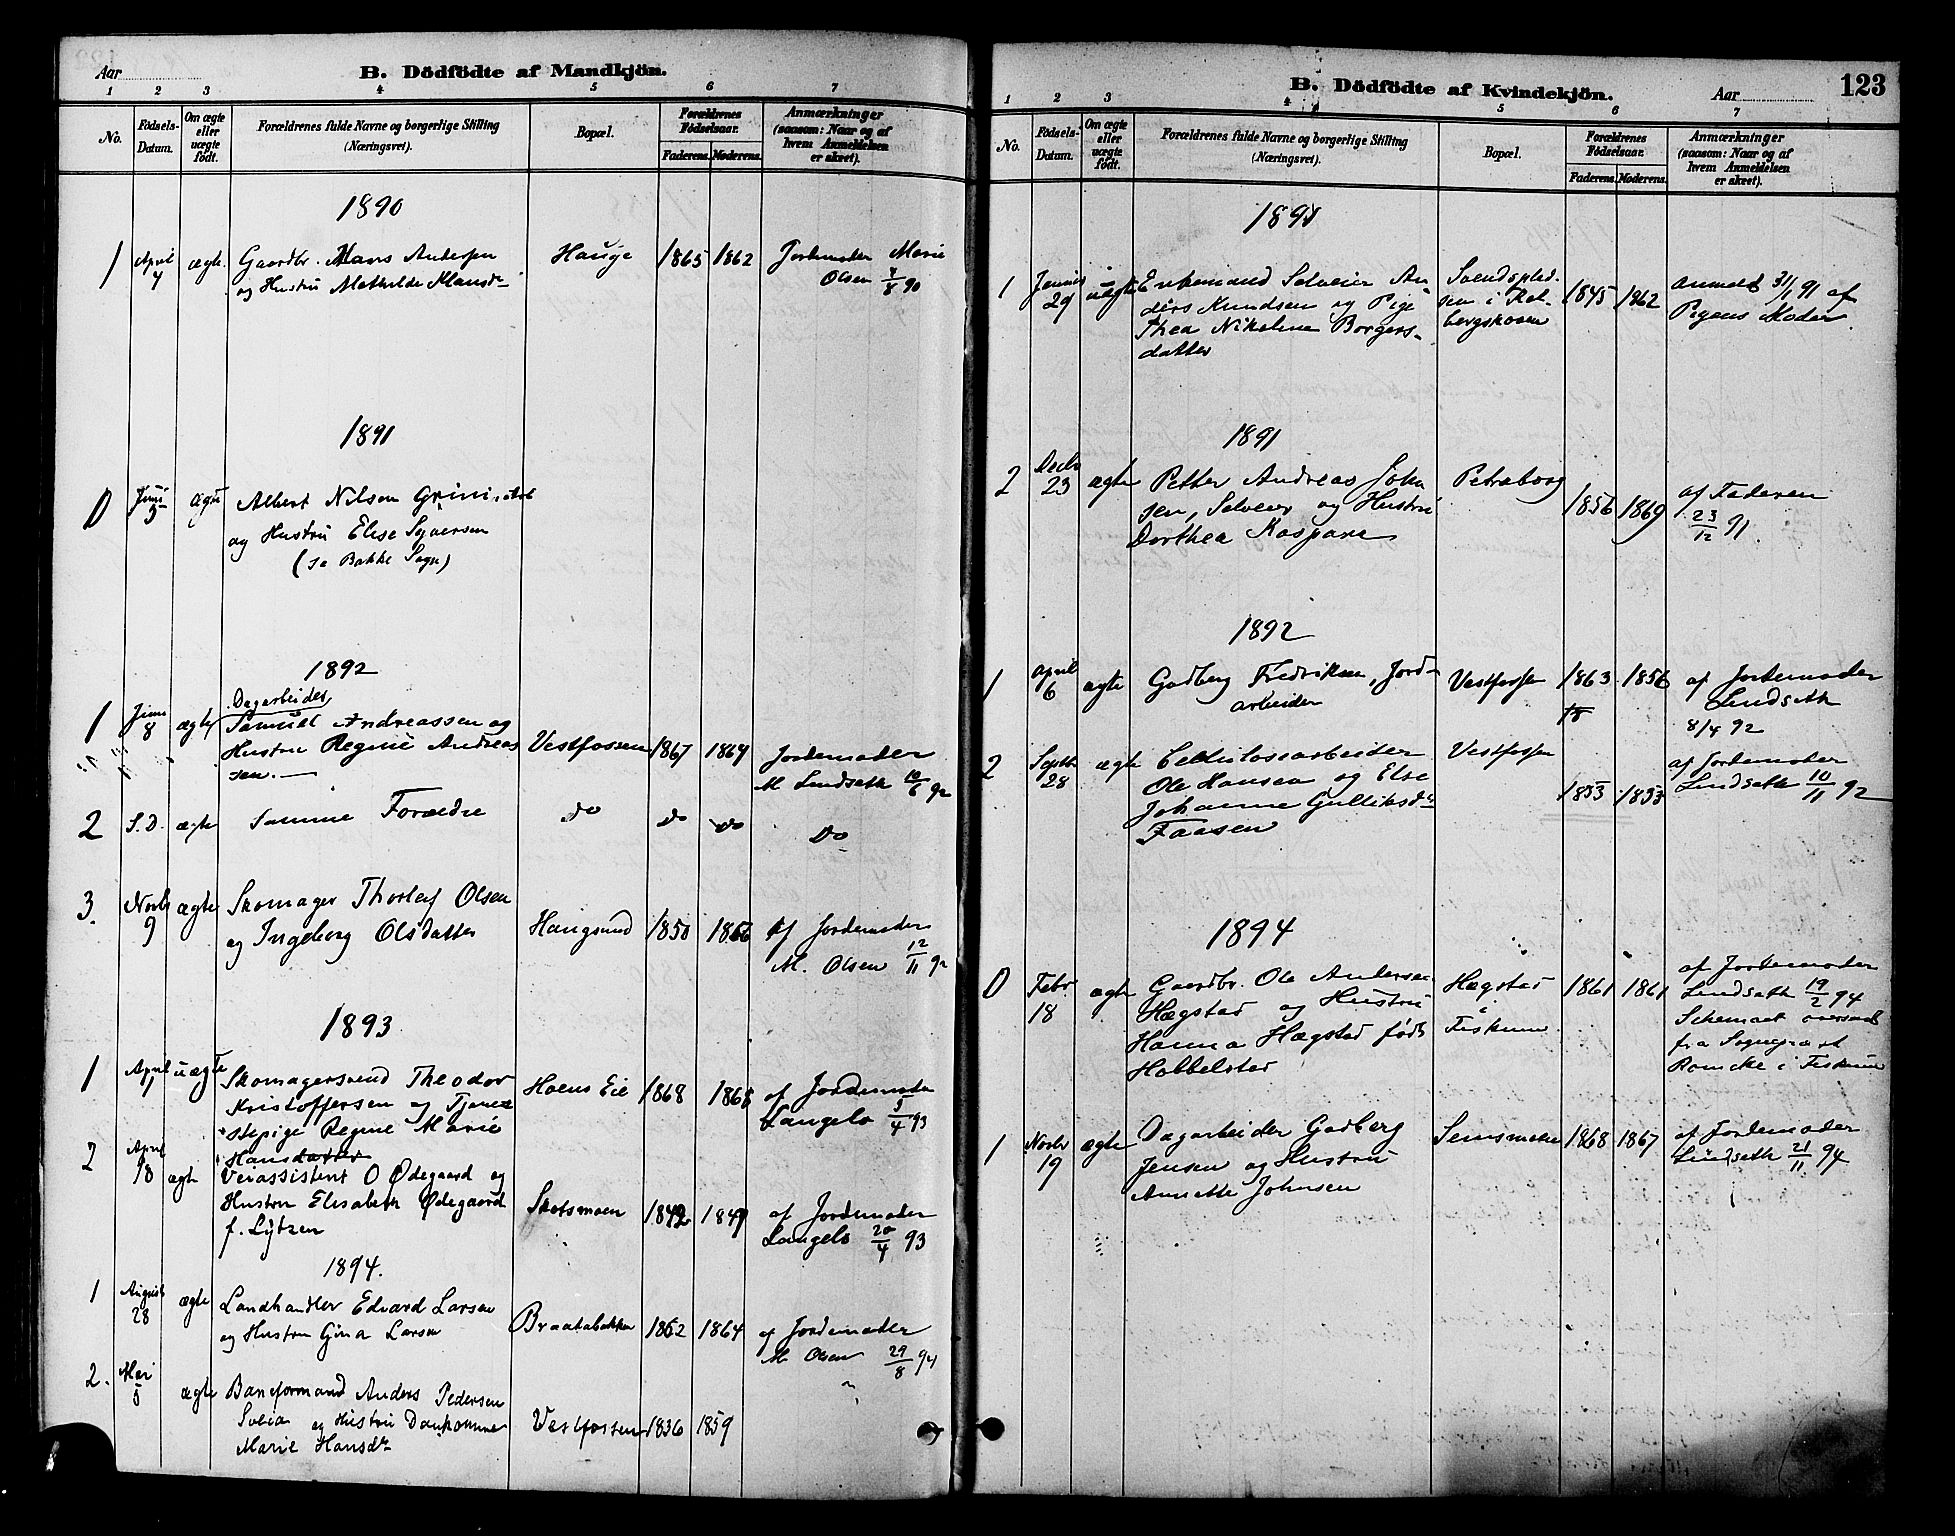 Aar
B. Dödfödte af Mandkjön.
1 2 3 4 5 6 7
No.
Födsels-Datum.
Om ægte eller uægte født.
Forældrenes fulde Navne og borgerlige Stilling
(Næringsvei).
Bopæl.
Forældrenes Fødselsaar.
Faderens. Moderens.
Anmærkninger
(saasom: Naar og af
hvem Anmeldelsen
er skeet).
1890
1 April 4 ægte. Gaardbr. Hans Andersen Hauge 1865 1862 Jordemoder Marie
og Hustru Mathilde Hansdr Olsen 8/8 90
1891
0 Juni 5 ægte Albert Nilsen Grini
og Hustru Elise Syversen
(se Bakke Sogn)
1892
Dagarbeider
1 Juni 8 ægte Samuel Andreassen og
Hustru Regine Andreas Vestfossen 1867 1869 Jordemoder
sen. M Lindseth 10/6 92
2 S.D. ægte Samme Forældre do do do Do
3. Novbr 9 ægte Skomager Thorlef Olsen
og Ingeborg Olsdatter Haugsund 1850 1856 Af Jordemoder
M. Olsen 12/11 92
1893
1 April 1 uægte Skomagersvend Theodor Hoens Eie 1868 1868 af Jordemoder
Kristoffersen og Tjene Langelo 5/4 93
stepige Regine Marie
Hansdatter
2 April 18 ægte Verassistent O Ødegaard og
Hustru Elisabeth Ødegaard Skotsmoen 1842 1849 af Jordemoder
f. Lytzen Langelo 20/4 93
1894.
1 August 28 ægte Landhandler Edvard Larsen
og Hustru Gina Larsen Braatabakken 1852 1864 af Jordemoder
M Olsen 29/8 94
2. Mai 5 ægte Baneformand Anders Pedersen
og Hustru Vestfossen 1836 1859
Marie Hansdr
B. Dödfödte af Kvindekjön.
Aar
123
1 2 3 4 5 6 7
No.
Födsels-Datum.
Om ægte eller uægte födt.
Forældrenes fulde Navne og borgerlige Stilling
(Næringsvei).
Bopæl.
Forældrenes Fødselsaar.
Faderens. Moderens.
Anmærkninger
(saasom: Naar og af
hvem Anmeldelsen
er skeet).
1891
1 29 uægte Enkemand Selveier An 1845 1862 Anmeldt 31/1 91 af
ders Knudsen og Pige Pigens Moder.
Thea Nikoline Borgers-
datter
1891
2 Decbr 23 ægte Petter Andreas Johan Petraborg 1856 1869 af Faderen
sen, Selveier og Hustru 23/12 91.
Dorthea Kaspara
1892
1 April 6 ægte Gudberg Fredriksen, Jord- Vestfossen 1863 1856 af Jordemoder
arbeider Lindseth
18 8/4 92
2 Septbr 28 ægte Cellulosearbeider Vestfossen af Jordemoder
Ole Hansen og Else 1853 1853 Lindseth 10/11 92
Johanne Gulliksdr
Faasen
1894
0 Febr. 18 ægte Gaardbr. Ole Andersen Hægstad 1861 1861 af Jordemoder
Hægstad og Hustru i Lindseth 19/2 94
Hanna Hægstad født Fiskum Schemaet oversendt
Hobbelstad fra Sogneprest
Romcke i Fiskum
1 Novbr 19 ægte Dagarbeider Gudberg Semsmoen 1868 1867 af Jordemoder
Jensen og Hustru Lindseth 21/11 94
Annette Johnsen